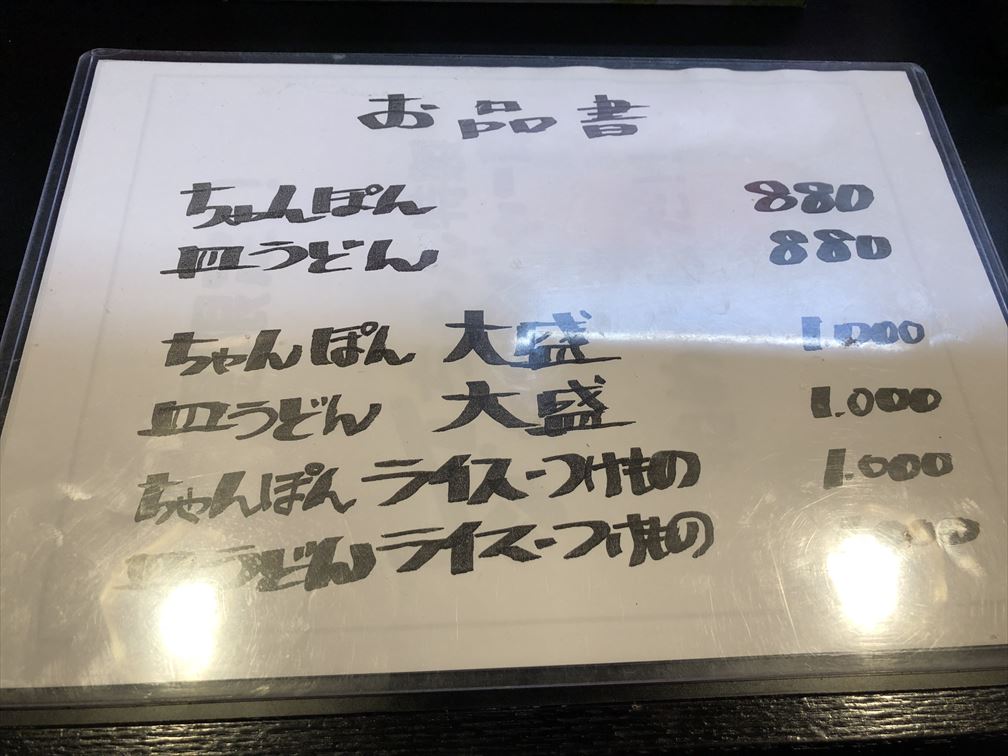 お品書
ちゃんぽん 880
皿うどん 880
ちゃんぽん 大盛 1.000
皿うどん 大盛 1.000
ちゃんぽん ライス・つけもの 1.000
皿うどん ライス・つけもの